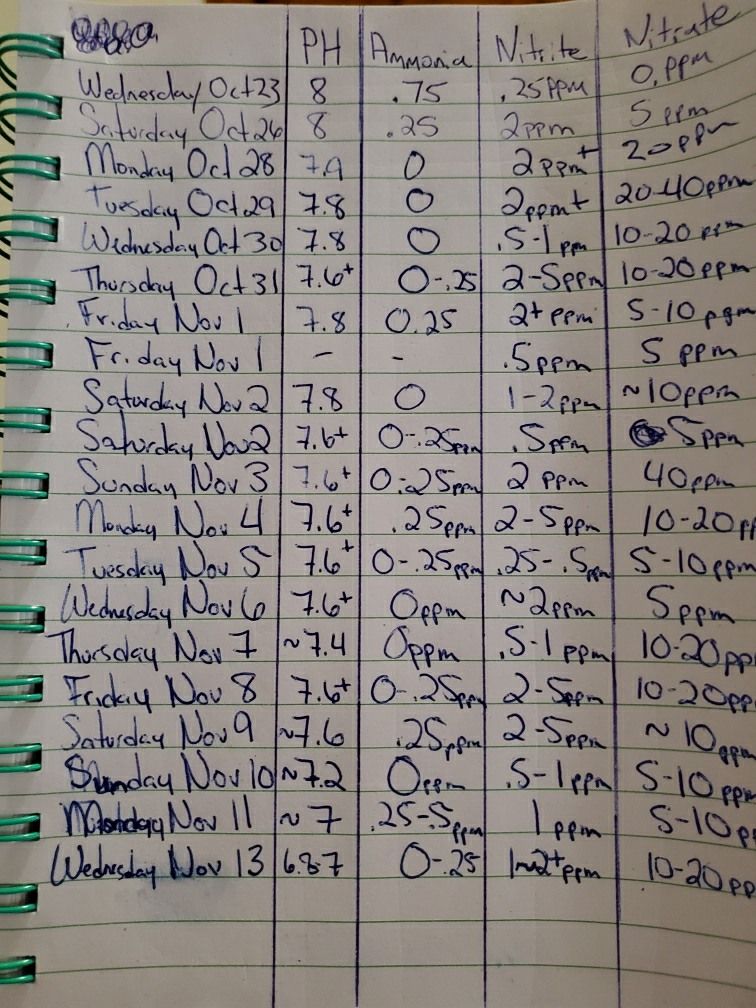 PH Ammonia Nitrite Nitrate
Wednesday Oct 23 8 .75 .25ppm 0.ppm
Saturday Oct 26 8 .25 2ppm 5ppm
Monday Oct 28 7.9 0 2ppm+ 20ppm
Tuesday Oct 29 7.8 0 2ppm+ 20-40ppm
Wednesday Oct 30 7.8 0 .5-1ppm 10-20ppm
Thursday Oct 31 7.6+ 0-.25 2-5ppm 10-20ppm
Friday Nov 1 7.8 0.25 2+ppm 5-10ppm
Friday Nov 1 - - .5ppm 5ppm
Saturday Nov 2 7.8 0 1-2ppm ~10ppm
Saturday Nov 2 7.6+ 0-.25ppm .5ppm 5ppm
Sunday Nov 3 7.6+ 0-.25ppm 2ppm 40ppm
Monday Nov 4 7.6+ .25ppm 2-5ppm 10-20pp
Tuesday Nov 5 7.6+ 0-.25ppm .25-.5ppm 5-10ppm
Wednesday Nov 6 7.6+ 0ppm ~2ppm 5ppm
Thursday Nov 7 ~7.4 0ppm .5-1ppm 10-20pp
Friday Nov 8 7.6+ 0-.25ppm 2-5ppm 10-20pp
Saturday Nov 9 ~7.6 .25ppm 2-5ppm ~10ppm
Sunday Nov 10 ~7.2 0ppm .5-1ppm 5-10ppm
Monday Nov 11 ~7 .25-.5ppm 1ppm 5-10p
Wednesday Nov 13 6.8-7 0-.25 1-2+ppm 10-20pp